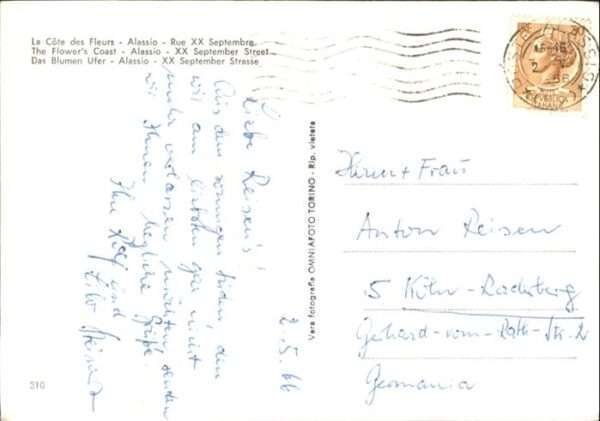 La Côte des Fleurs - Alassio - Rue XX Septembre
The Flower's Coast - Alassio - XX September Street
Das Blumen Ufer - Alassio - XX September Strasse
2.5.66
Liebe Reisen's!
Aus dem sonnigen Süden, den
wir am liebsten gar nicht
mehr verlassen möchten, senden
wir Ihnen herzliche Grüße.
Ihre Rolf und
Vera fotografia OMNIAFOTO TORINO - Rip. vietata
Herrn + Frau
Anton Reisen
5 Köln-
Gerhard-vom-Rath-Str. 2
Germania
210